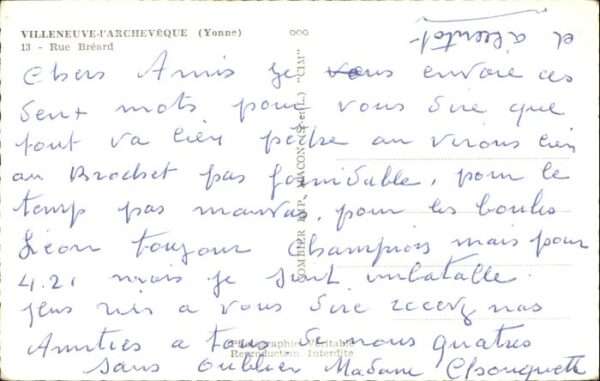 VILLENEUVE-l'ARCHEVÊQUE (Yonne)
13 - Rue Bréard
Chers Amis je vous envoie ces
deux mots pour vous dire que
tout va bien pêche au virons bien
au Brochet pas formidable, pour le
temp pas mauvais, pour les boules
Léon toujour Champion mais pour
4.21 mais je suit imbatable
plus rien a vous dire recevez nos
Amities a tous de nous quatres
sans oublier Madame Chouquette
et a bientot
COMBIER IMP. MACON (S.-et-L.) "CIM"
Photographie Véritable
Reproduction Interdite